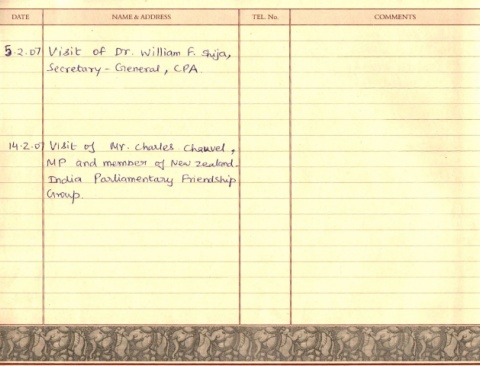 DATE NAME & ADDRESS TEL. No. COMMENTS
5.2.07 Visit of Dr. William F. Shija,
Secretary - General, CPA.
14.2.07 Visit of Mr. Charles Chauvel,
MP and member of New Zealand.
India Parliamentary Friendship
Group.